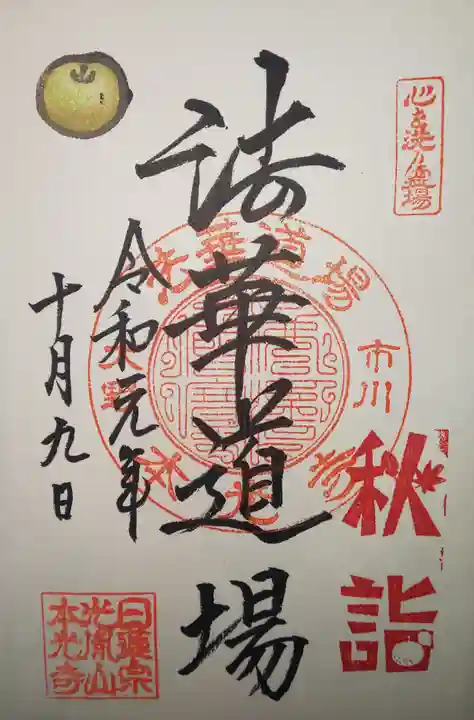 心を洗
法華道場
市川
秋詣
令和元年
十月九日
大野
日蓮宗
光胤山
本光寺